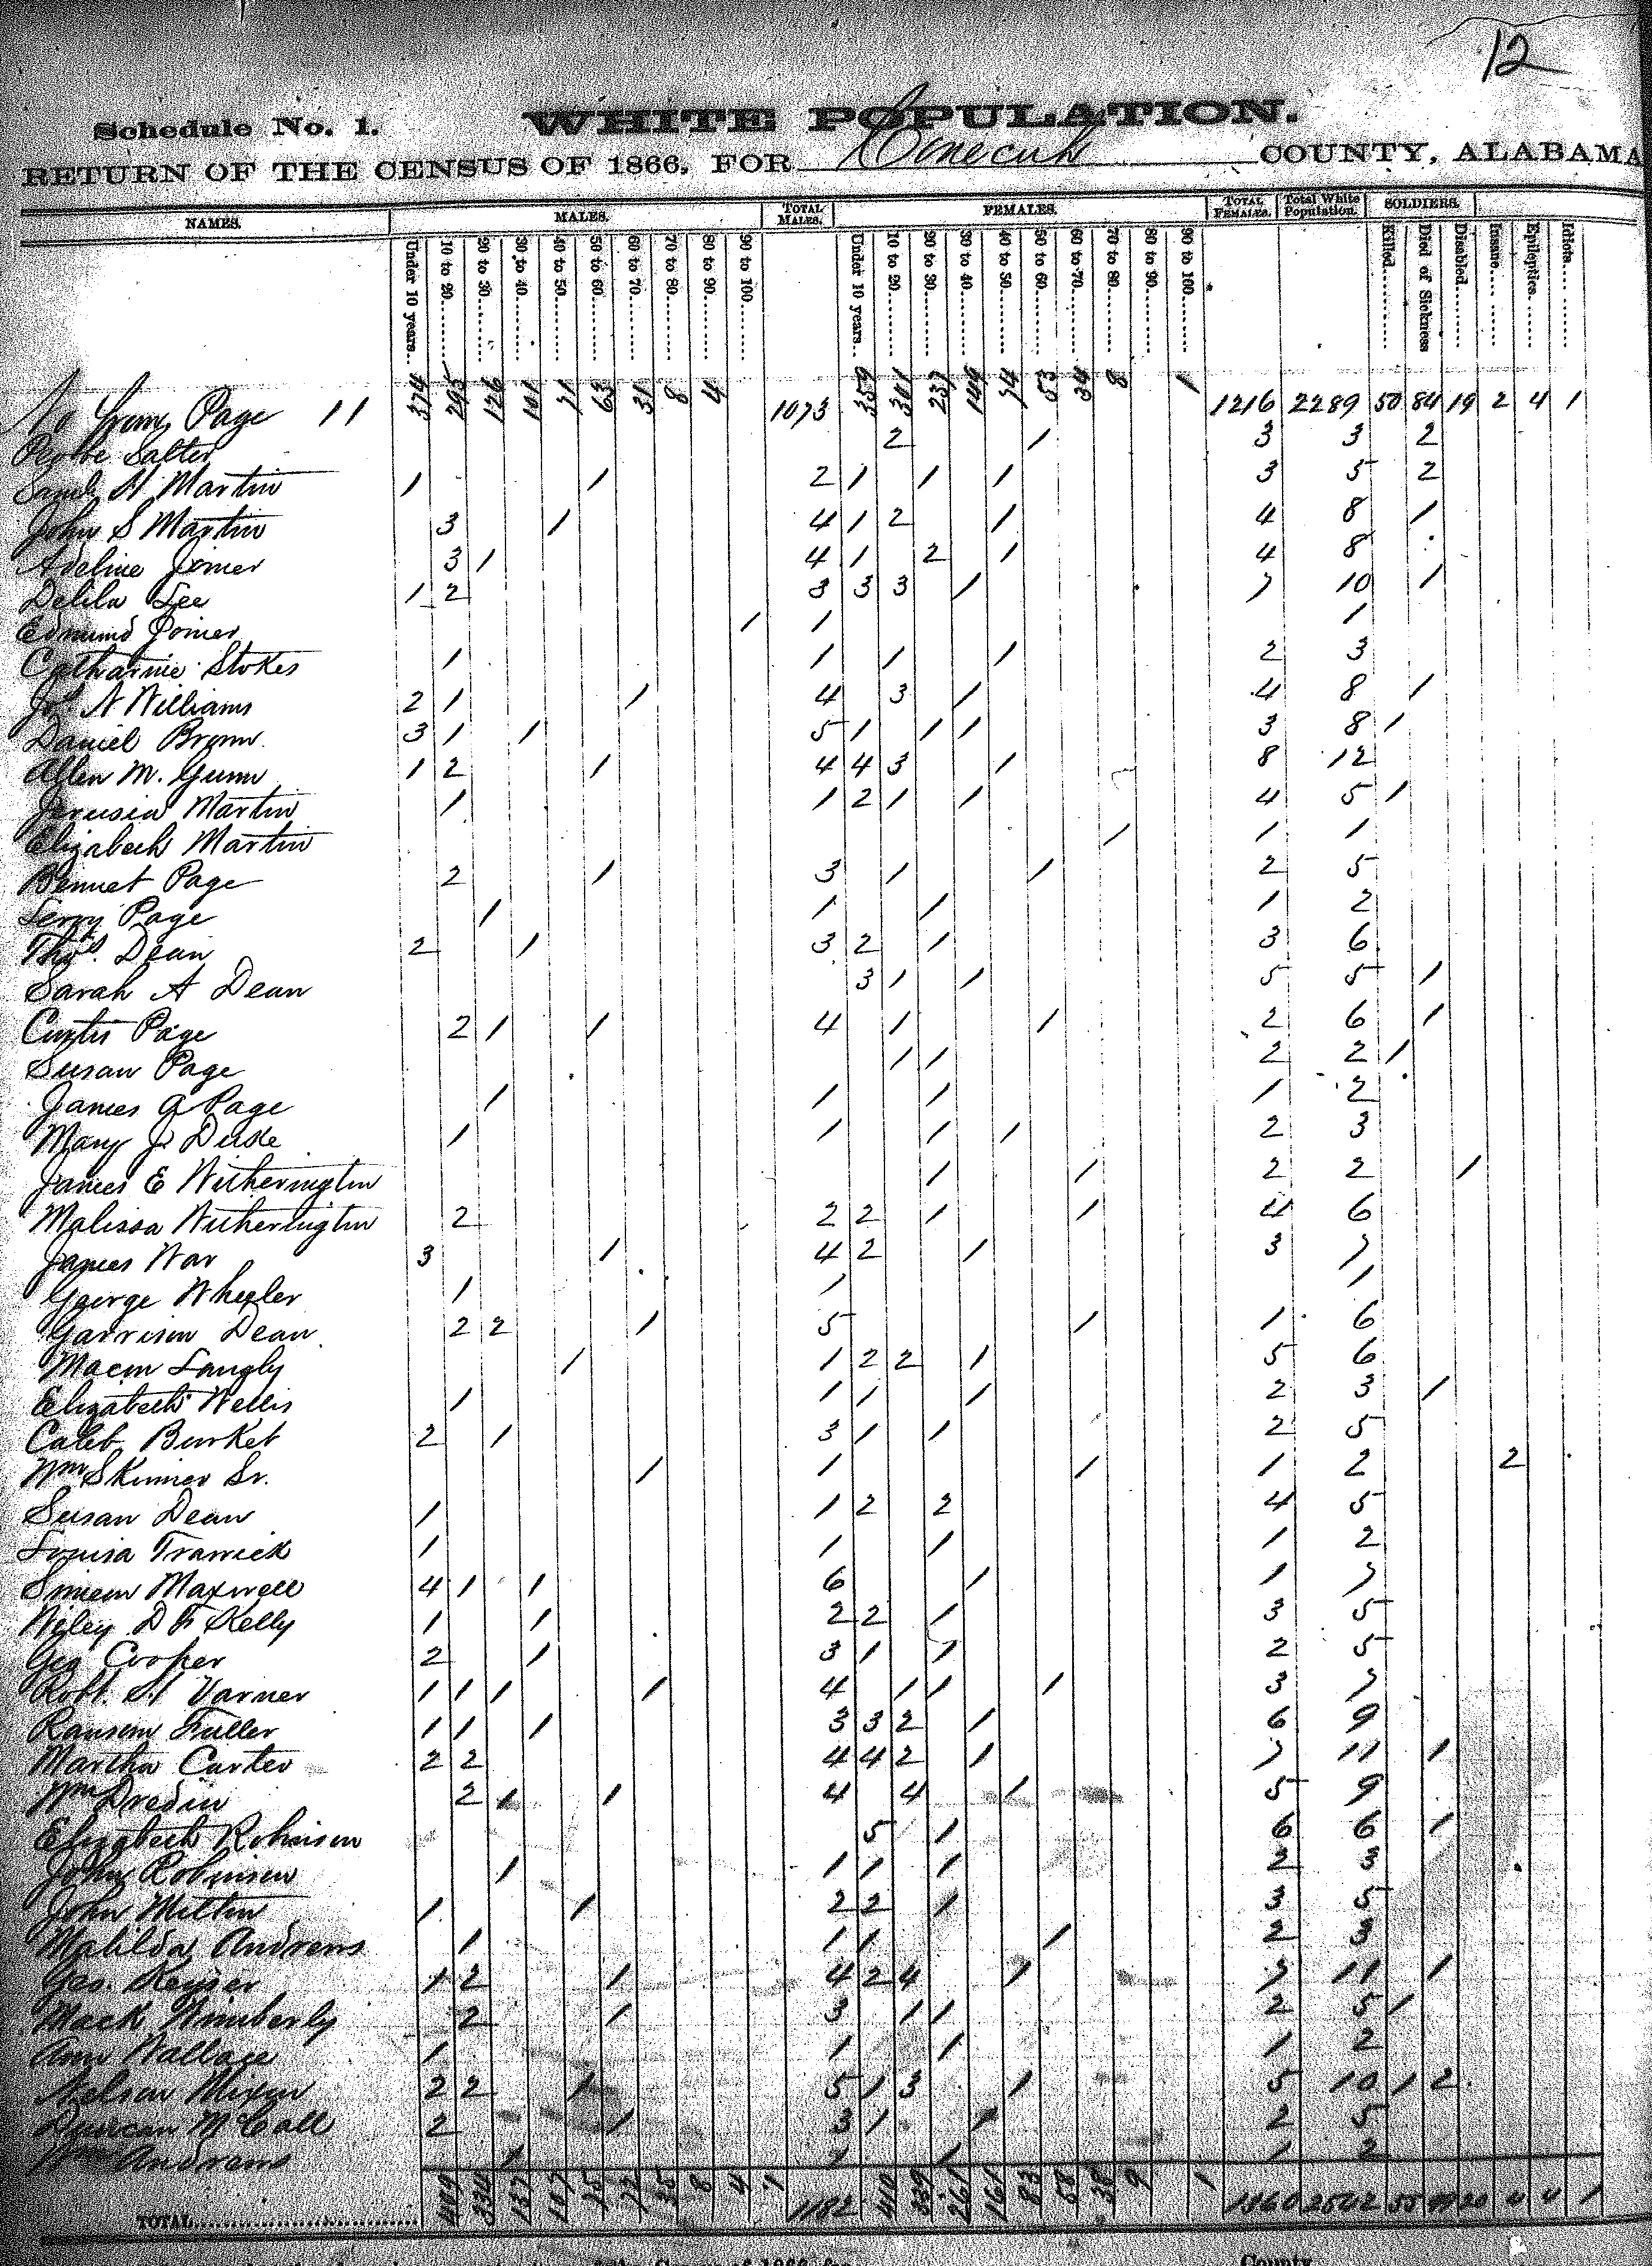 12
Schedule No. 1. WHITE POPULATION.
RETURN OF THE CENSUS OF 1866, FOR Conecuh COUNTY, ALABAMA
NAMES. MALES. TOTAL MALES. FEMALES. TOTAL FEMALES. Total White Population. SOLDIERS.
Under 10 years 10 to 20 20 to 30 30 to 40 40 to 50 50 to 60 60 to 70 70 to 80 80 to 90 90 to 100 Under 10 years 10 to 20 20 to 30 30 to 40 40 to 50 50 to 60 60 to 70 70 to 80 80 to 90 90 to 100 Killed Died of Sickness Disabled Insane Epileptics Idiots
No from Page 11 374 295 126 101 71 63 31 8 4 1073 359 301 237 149 74 53 34 8 1 1216 2289 50 84 19 2 4 1
Salter 2 1 3 3 2
Saml H Martin 1 1 2 1 1 1 3 5 2
John S Martin 3 1 4 1 2 1 4 8 1
Adeline Joiner 3 1 4 1 2 1 4 8
Delila Lee 1 2 3 3 3 1 7 10 1
Edmund Joiner 1 1 1
Catharine Stokes 1 1 1 1 2 3
Jos A Williams 2 1 1 4 3 1 4 8 1
Daniel Brown 3 1 1 5 1 1 1 3 8 1
Allen M. Gunn 1 2 1 4 4 3 1 8 12
Jerusia Martin 1 1 2 1 1 4 5 1
Elizabeth Martin 1 1 1
Bennet Page 2 1 3 1 1 2 5
Leroy Page 1 1 1 1 2
Thos. Dean 2 1 3 2 1 3 6
Sarah A Dean 3 1 1 5 5 1
Curtis Page 2 1 1 4 1 1 2 6 1
Susan Page 1 1 2 2 1
James A Page 1 1 1 1 2
Mary J. Duke 1 1 1 1 2 3
James E Witherington 1 1 2 2 1
Malissa Witherington 2 2 2 1 1 4 6
James War 3 1 4 2 1 3 7
George Wheeler 1 1 1
Garrison Dean 2 2 1 5 1 1 6
Macon Langly 1 1 2 2 1 5 6
Elizabeth Wells 1 1 1 1 2 3 1
Caleb Burket 2 1 3 1 1 2 5
Wm Skinner Sr. 1 1 1 1 2 2
Susan Dean 1 1 2 2 4 5
Louisa Trawick 1 1 1 1 2
Simeon Maxwell 4 1 1 6 1 1 7
Wiley D F Kelly 1 1 2 2 1 3 5
Geo Cooper 2 1 3 1 1 2 5
Robt. H Varner 1 1 1 1 4 1 1 1 3 7
Ransom Fuller 1 1 1 3 3 2 1 6 9
Martha Carter 2 2 4 4 2 1 7 11 1
Wm 2 1 1 4 4 1 5 9
Elizabeth Robinson 5 1 6 6 1
John Robinson 1 1 1 1 2 3
John 1 1 2 2 1 3 5
Matilda Andrews 1 1 1 1 2 3
Geo. Keyser 1 2 1 4 2 4 1 7 11 1
Mack Wimberly 2 1 3 1 1 2 5 1
Ann Wallace 1 1 1 1 2
Nelson Mixon 2 2 1 5 1 3 1 5 10 1 2
Duncan McCall 2 1 3 1 1 2 5
Wm Andrews 1 1 1 1 2
TOTAL 334 137 35 8 4 1 1182 410 339 261 161 83 58 38 9 1 1360 2542 55 99 20 4 4 1
County